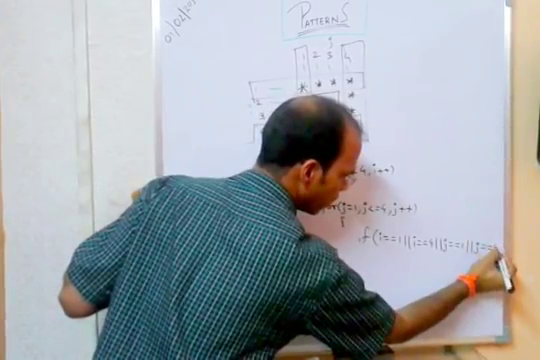 01/02/20
PATTERNS
j
1 2 3 4
* * * *
2 *
3
4, i++)
(j=1, j<=4, j++)
{
if(i==1||i==4||j==1||j==